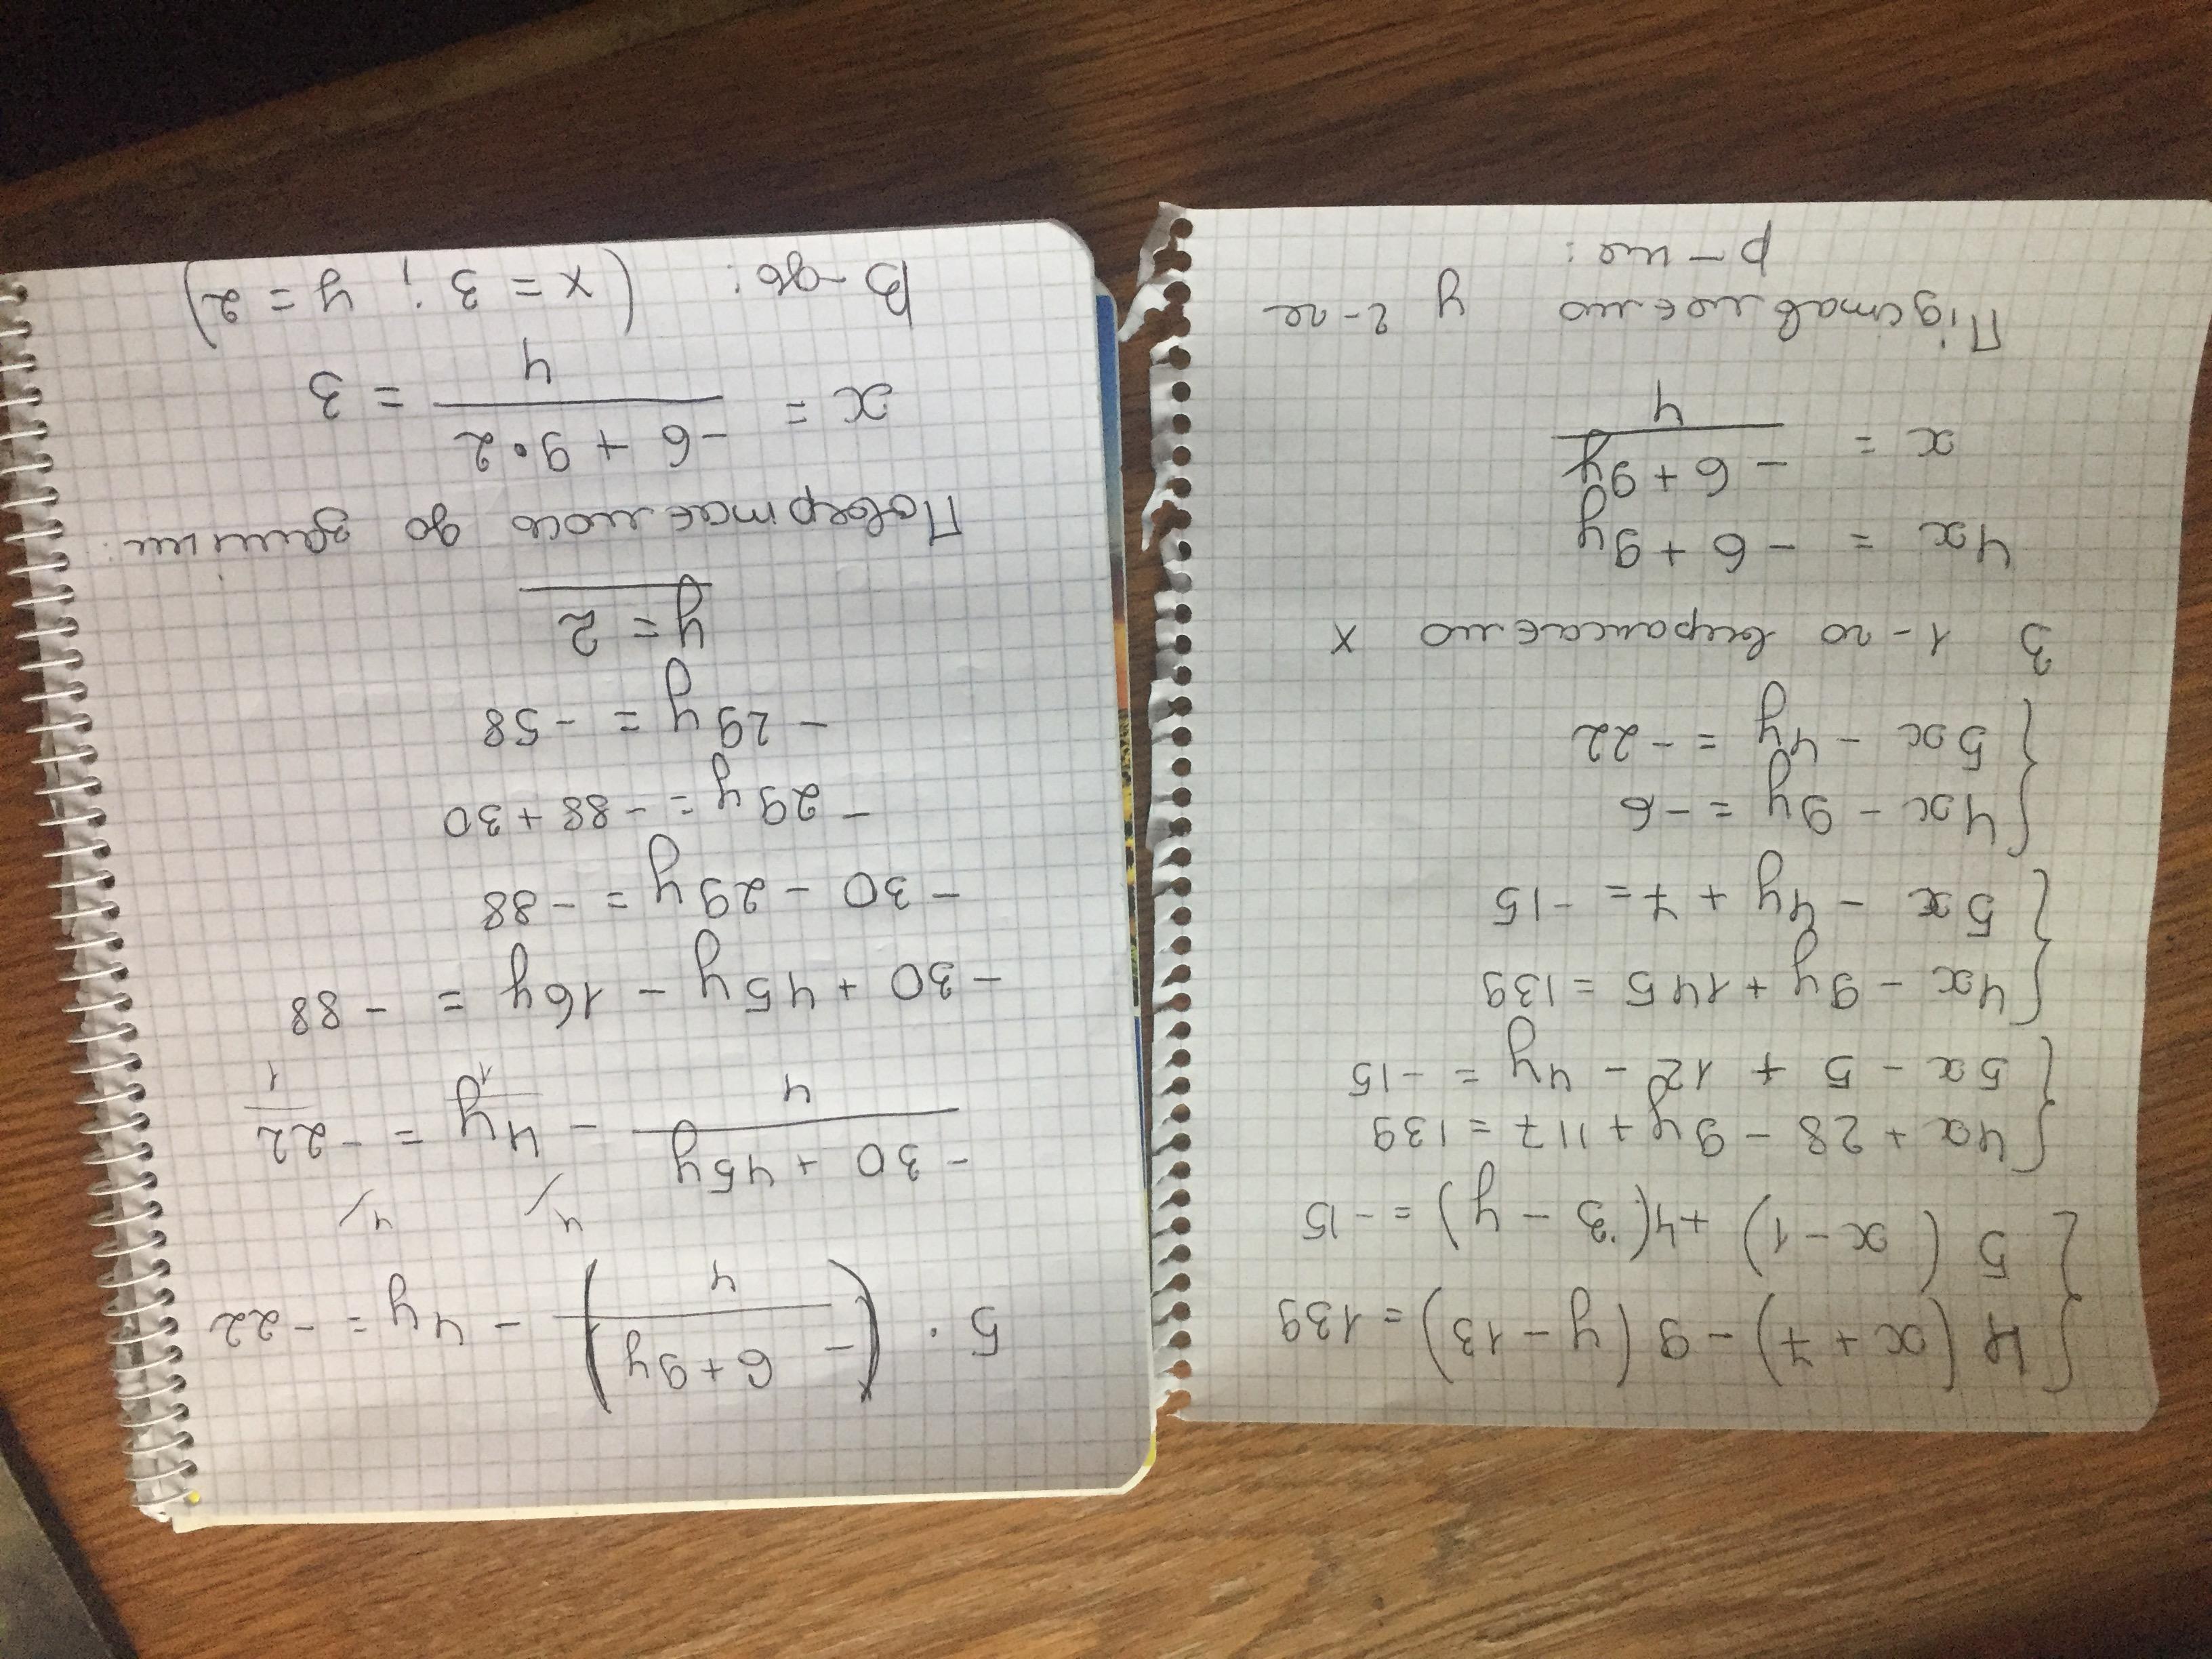 4 (x + 7) - 9 (y - 13) = 139
5 (x - 1) + 4(3 - y) = -15
4x + 28 - 9y + 117 = 139
5x - 5 + 12 - 4y = -15
4x - 9y + 145 = 139
5x - 4y + 7 = -15
4x - 9y = -6
5x - 4y = -22
З 1-го виражаємо x
4x = -6 + 9y
x = (-6 + 9y)/4
Підставляємо у 2-ге
р-ня:
5 · ((-6 + 9y)/4) - 4y = -22
4/ 4/
(-30 + 45y)/4 - 4y/1 = -22/1
-30 + 45y - 16y = -88
-30 - 29y = -88
-29y = -88 + 30
-29y = -58
y = 2
Повертаємось до заміни:
x = (-6 + 9·2)/4 = 3
В-дь: (x = 3; y = 2)